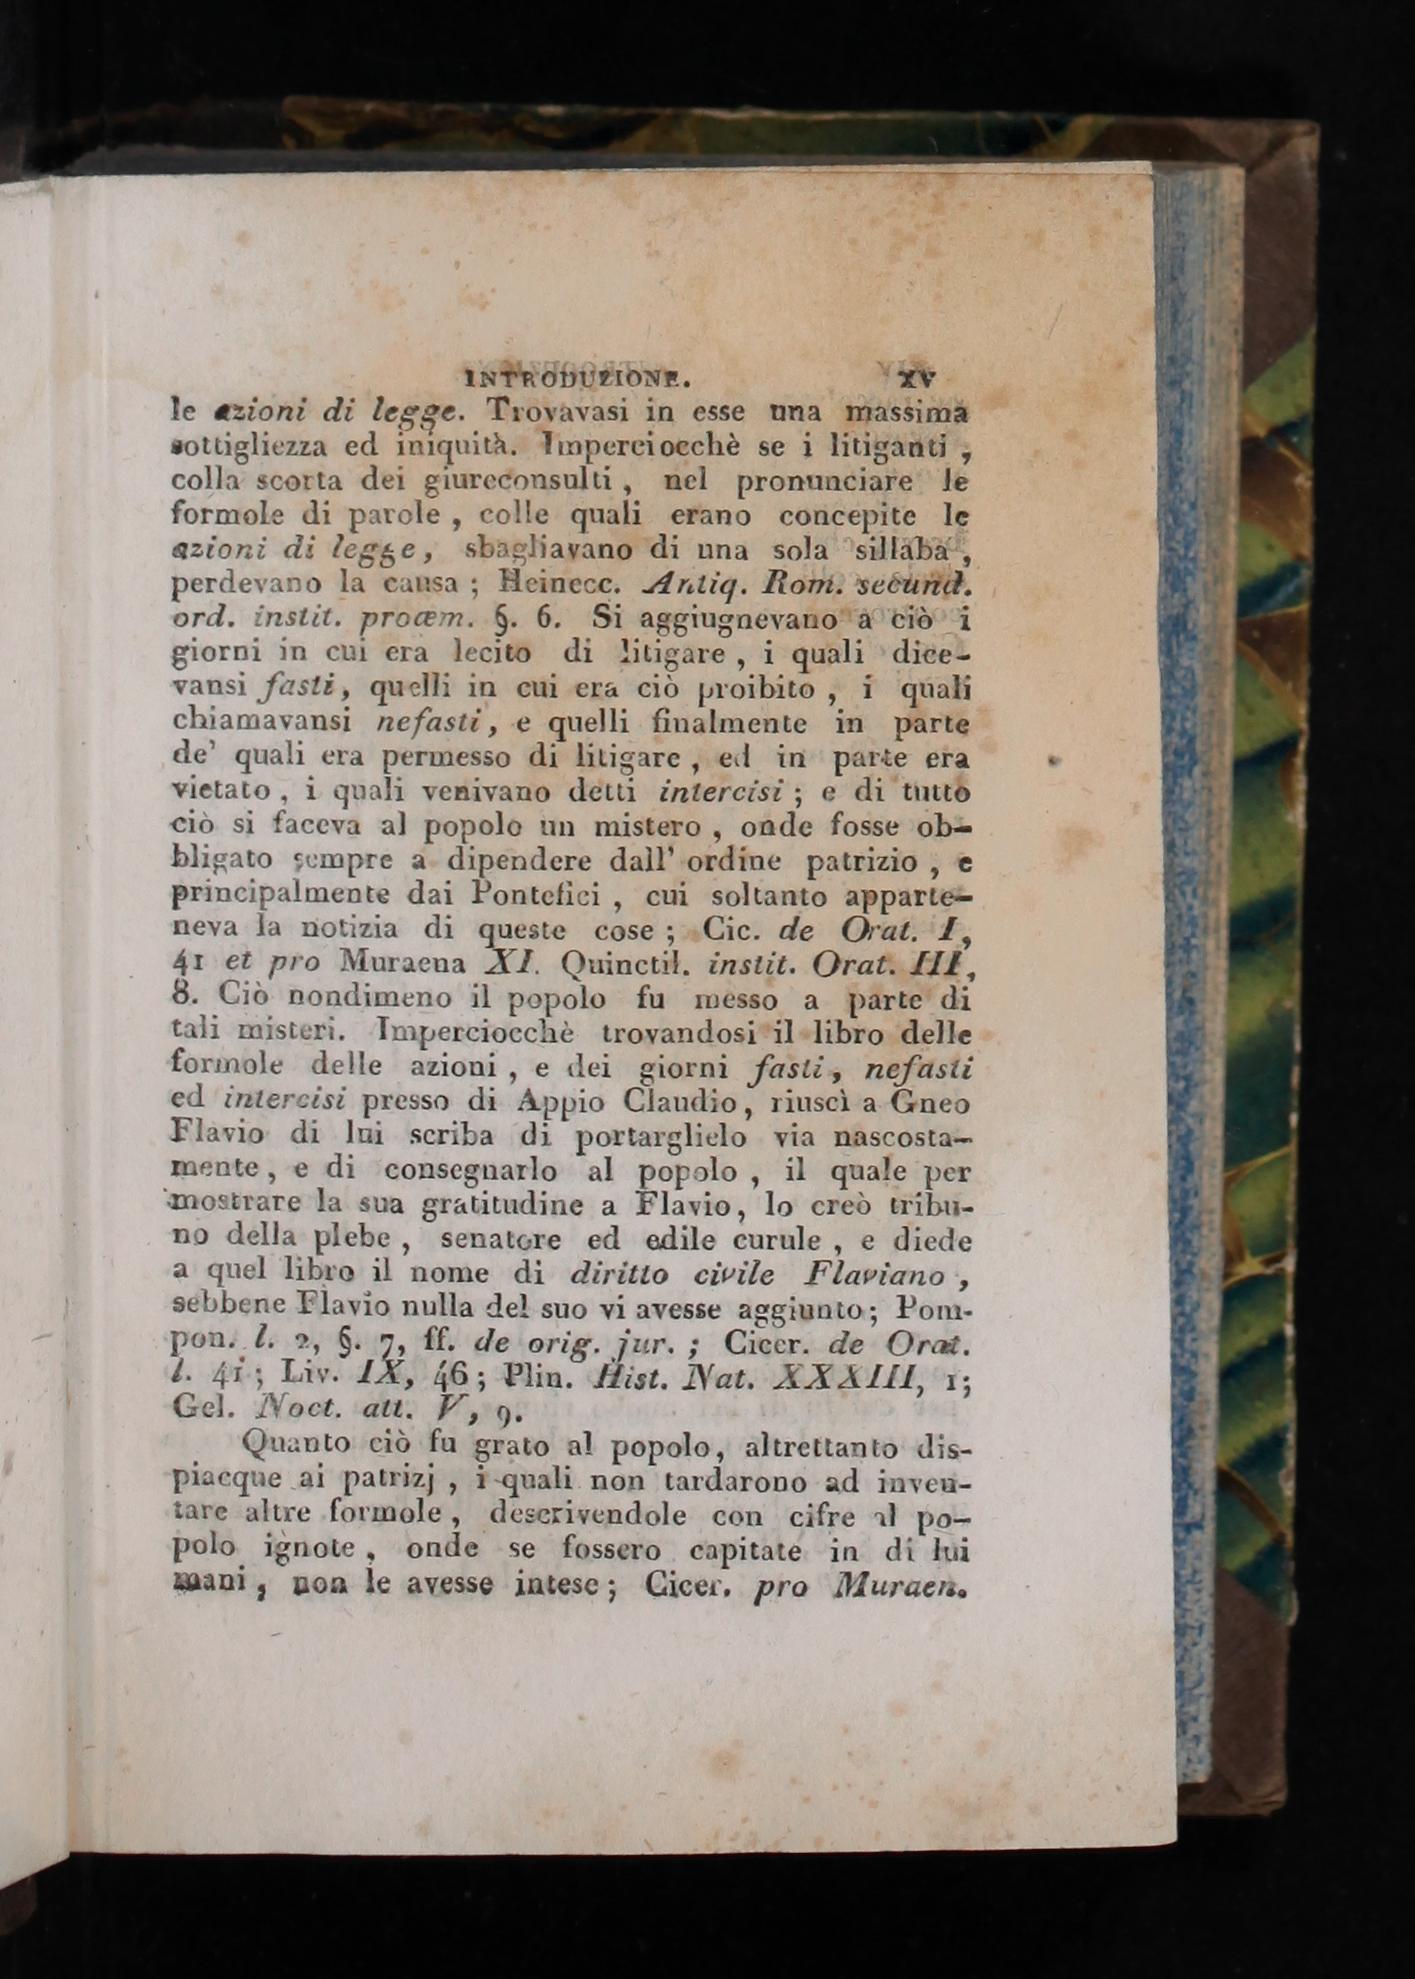 INTRODUZIONE. XV
le azioni di legge. Trovavasi in esse una massima
sottigliezza ed iniquità. Imperciocchè se i litiganti ,
colla scorta dei giureconsulti , nel pronunciare le
formole di parole , colle quali erano concepite le
azioni di legge, sbagliavano di una sola sillaba ,
perdevano la causa ; Heinecc. Antiq. Rom. secund.
ord. instit. proœm. §. 6. Si aggiugnevano a ciò i
giorni in cui era lecito di litigare , i quali dice-
vansi fasti, quelli in cui era ciò proibito , i quali
chiamavansi nefasti, e quelli finalmente in parte
de' quali era permesso di litigare , ed in parte era
vietato , i quali venivano detti intercisi ; e di tutto
ciò si faceva al popolo un mistero , onde fosse ob-
bligato sempre a dipendere dall' ordine patrizio , e
principalmente dai Pontefici , cui soltanto apparte-
neva la notizia di queste cose ; Cic. de Orat. I,
41 et pro Muraena XI. Quinctil. instit. Orat. III,
8. Ciò nondimeno il popolo fu messo a parte di
tali misteri. Imperciocchè trovandosi il libro delle
formole delle azioni , e dei giorni fasti, nefasti
ed intercisi presso di Appio Claudio, riuscì a Gneo
Flavio di lui scriba di portarglielo via nascosta-
mente, e di consegnarlo al popolo , il quale per
mostrare la sua gratitudine a Flavio, lo creò tribu-
no della plebe , senatore ed edile curule , e diede
a quel libro il nome di diritto civile Flaviano ,
sebbene Flavio nulla del suo vi avesse aggiunto; Pom-
pon. l. 2, §. 7, ff. de orig. jur. ; Cicer. de Orat.
l. 41 ; Liv. IX, 46 ; Plin. Hist. Nat. XXXIII, 1;
Gel. Noct. att. V, 9.
Quanto ciò fu grato al popolo, altrettanto dis-
piacque ai patrizj , i quali non tardarono ad inven-
tare altre formole , descrivendole con cifre al po-
polo ignote , onde se fossero capitate in di lui
mani , non le avesse intese ; Cicer. pro Muraen.